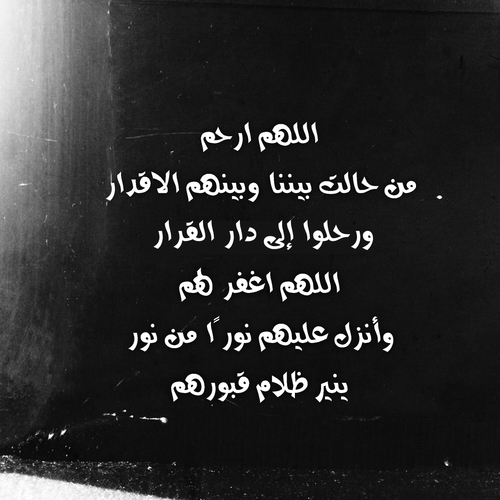 اللهم ارحم
من حالت بيننا وبينهم الاقدار .
ورحلوا إلى دار القرار
اللهم اغفر لهم
وأنزل عليهم نورًا من نور
ينير ظلام قبورهم